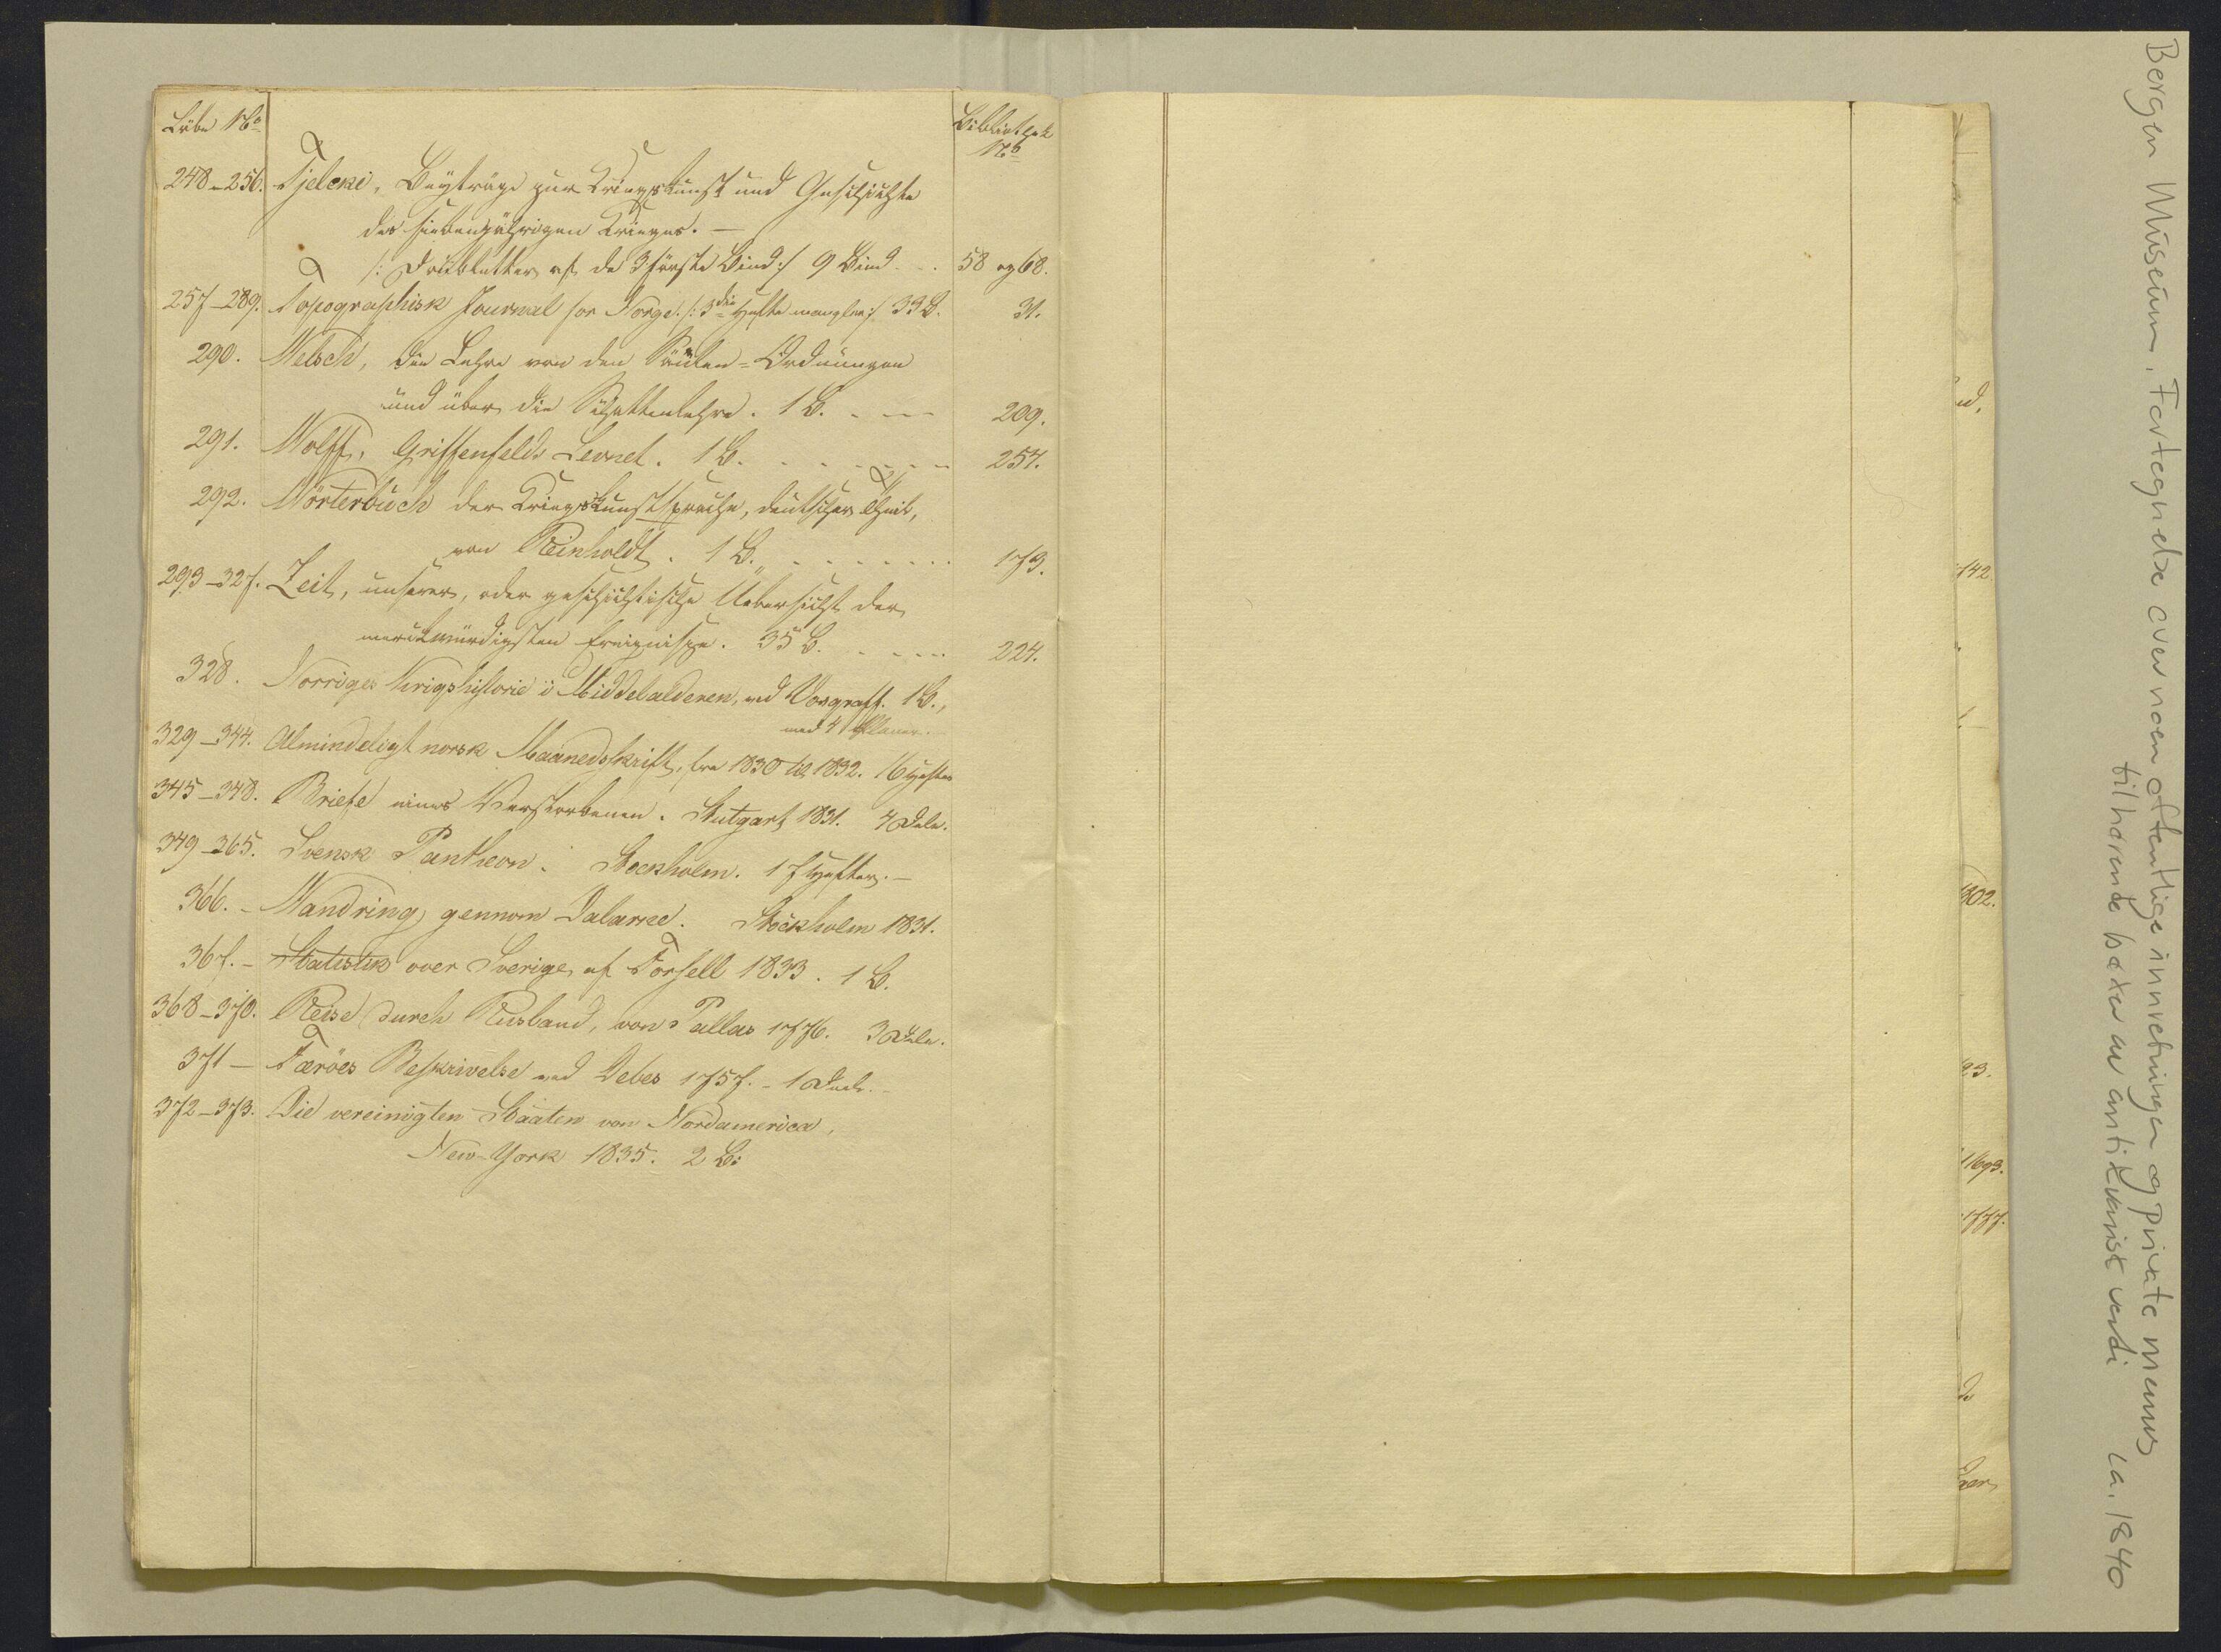 Löbe No Bibliothek No
248-256. Tjelcke, Beyträge zur Kriegskunst und Geschichte
des siebenjährigen Krieges. —
/: Pröblutter af de 3 förste Bind :/ 9 Bind . . 58 og 68.
257-289. Topographisk Journal for Norge. /: 3die Hefte mangler :/ 33 B. 31.
290. Welsch, die Lehre von den Säulen-Ordnungen
und über die Schattenlehre. 1 B. 209.
291. Wolff, Griffenfelds Levnet. 1 B. 254.
292. Wörterbuch der Kriegskunstsprache, deutscher Theil,
von Reinholdt. 1 B. 173.
293-327. Zeit, unserer, oder geschichtliche Uebersicht der
merckwürdigsten Ereignisse. 35 B. 224.
328. Norriges Krigshistorie i Middelalderen, ved Vosgraff. 1 B.,
med 4 Planer.
329-344. Almindeligt norsk Maanedsskrift, fra 1830 til 1832. 16 Hefter
345-348. Briefe eines Verstorbenen. Stutgart 1831. 4 Dele.
349-365. Svensk Pantheon. Stockholm. 17 Hefter. —
366. - Wandring gennom Dalarne. Stockholm 1831.
367. - Statistik over Sverige, af Forsell 1833. 1 B.
368-370. Reise durch Rusland, von Pallas 1776. 3 Dele.
371 - Færöes Beskrivelse ved Debes 1757. - 1 Deel. -
372-373. Die vereinigten Staaten von Nordamerica,
New-York 1835. 2 B:
ud,
142.
1802.
93.
1693.
1777.
Bergen Museum, Fortegnelse over noen offentlige innretninger og private menns
tilhørende bøker av antikvarisk verdi ca. 1840